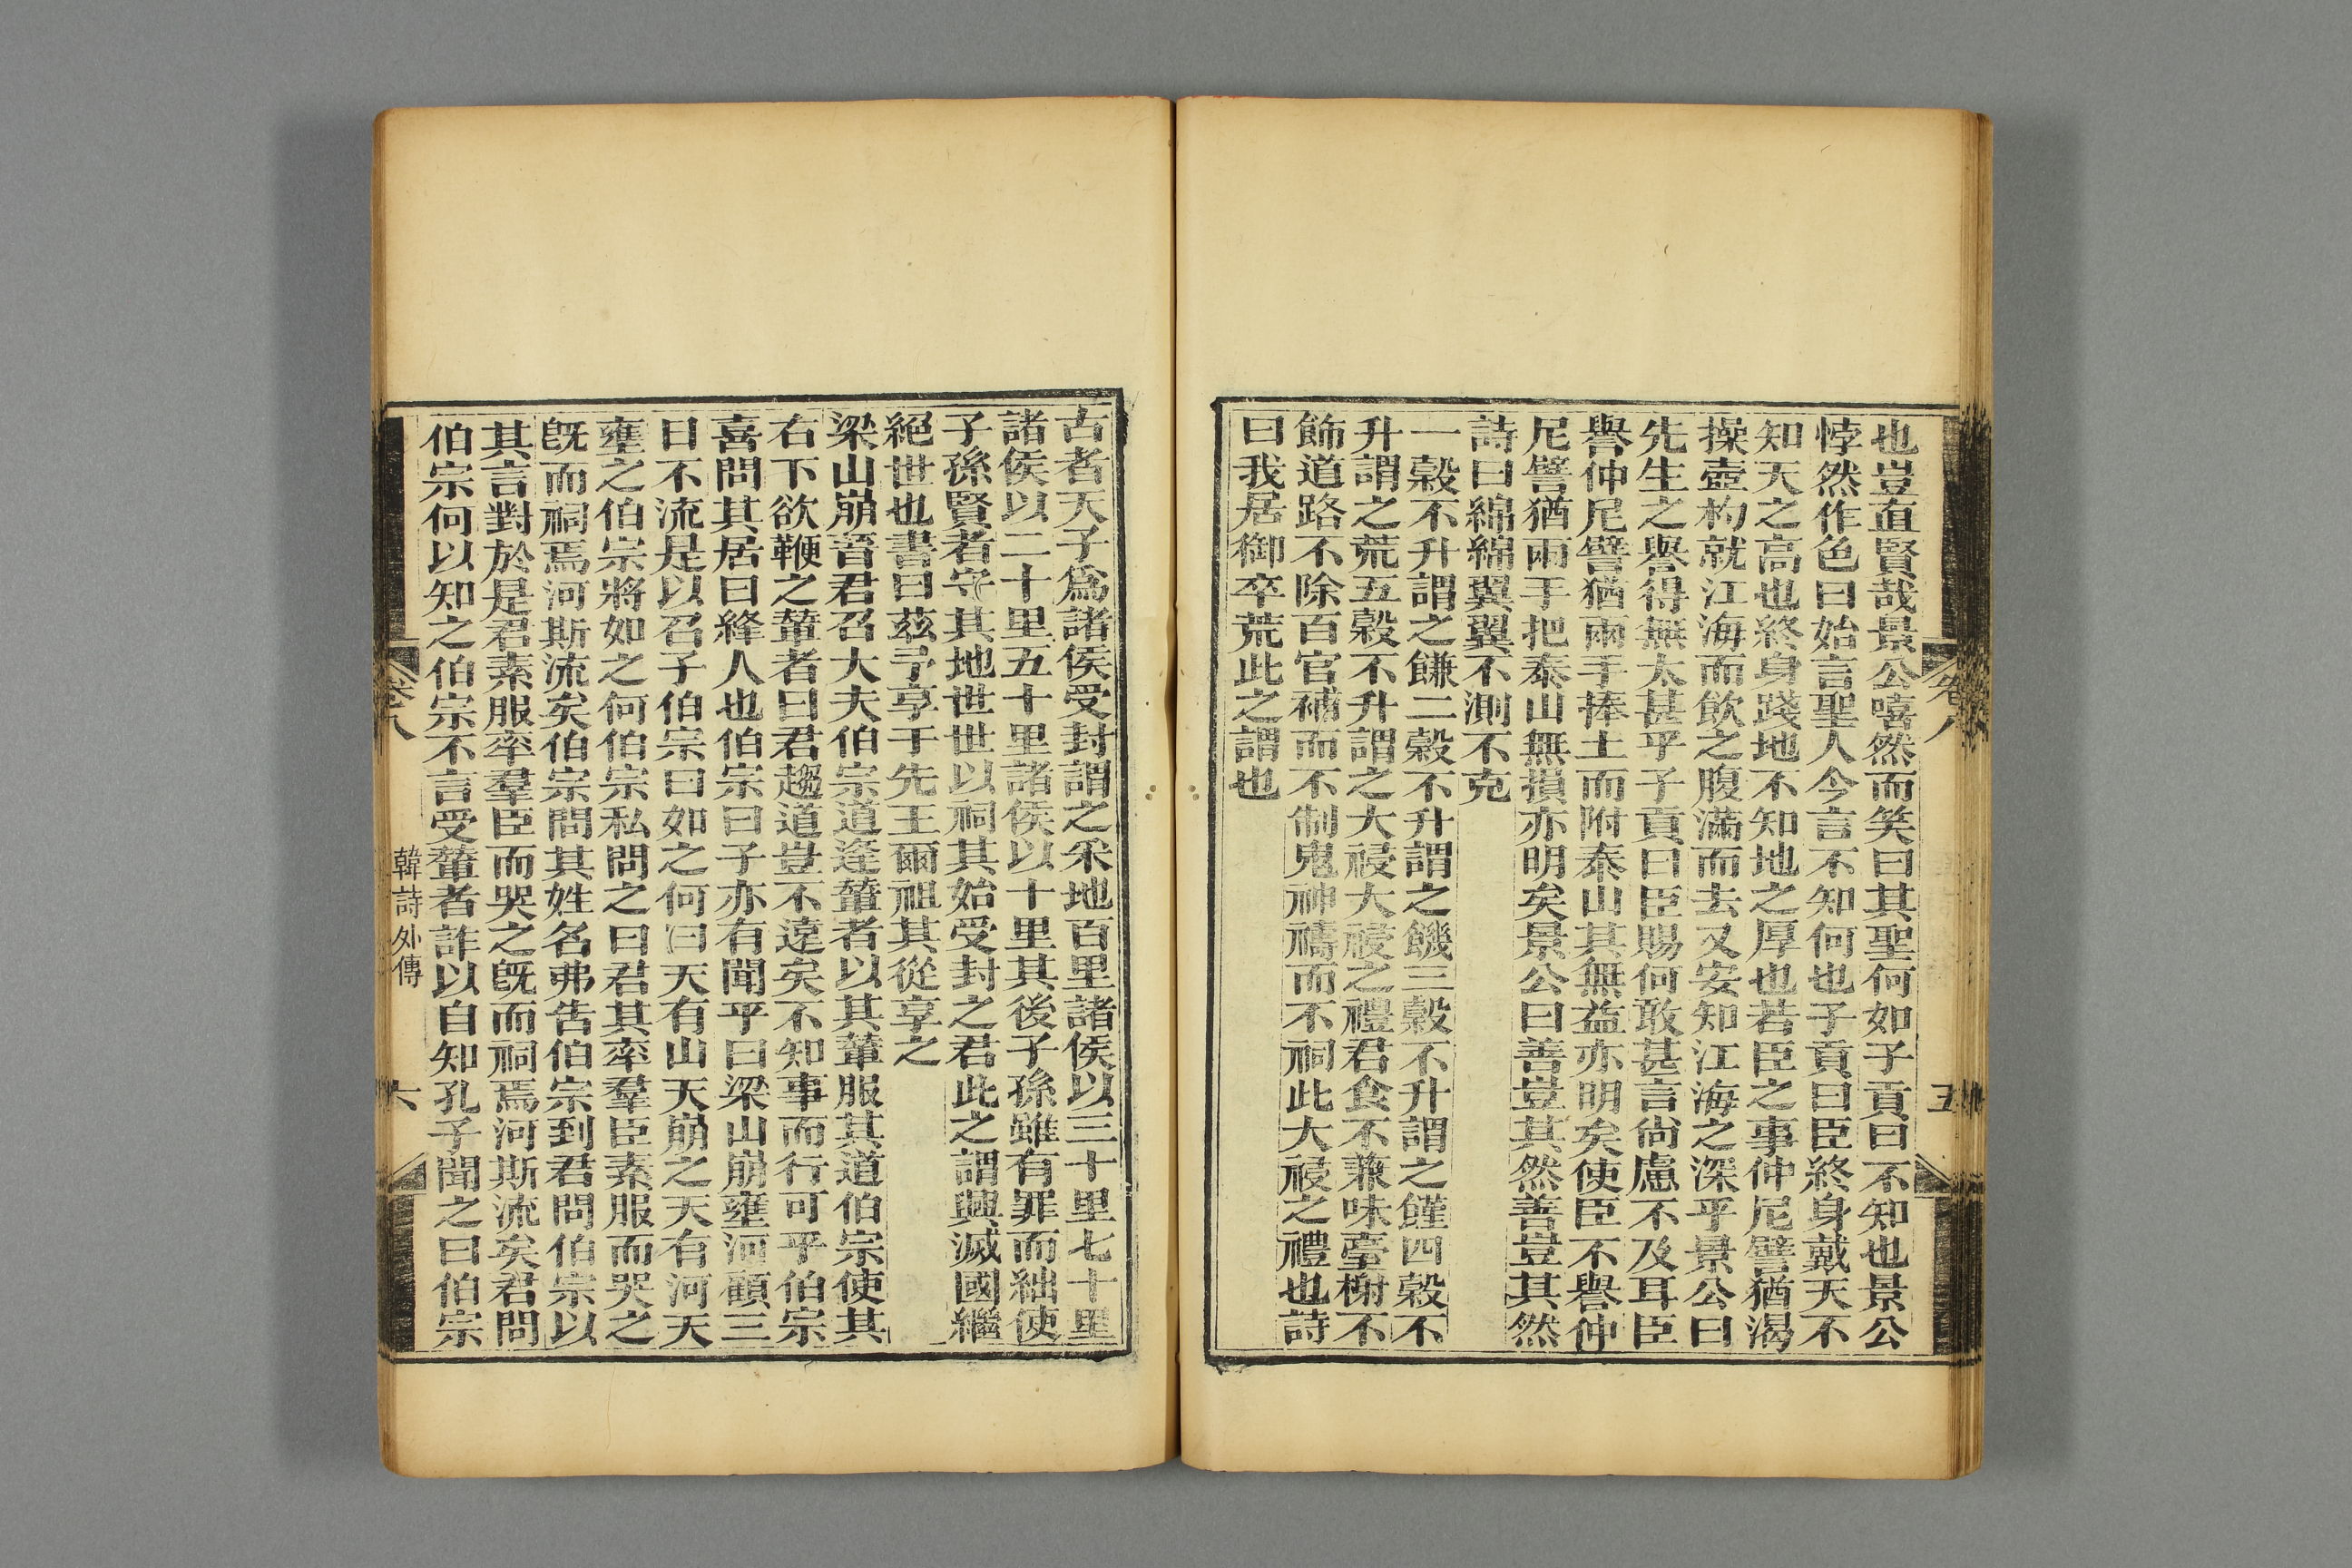 也豈直賢哉景公嘻然而笑曰其聖何如子貢曰不知也景公
悖然作色曰始言聖人今言不知何也子貢曰臣終身戴天不
知天之高也終身踐地不知地之厚也若臣之事仲尼譬猶渴
操壺杓就江海而飲之腹滿而去又安知江海之深乎景公曰
先生之譽得無太甚乎子貢曰臣賜何敢甚言尙慮不及耳臣
譽仲尼譬猶兩手捧土而附泰山其無益亦明矣使臣不譽仲
尼譬猶兩手把泰山無損亦明矣景公曰善豈其然善豈其然
詩曰綿綿翼翼不測不克
一穀不升謂之鎌二穀不升謂之饑三穀不升謂之饉四穀不
升謂之荒五穀不升謂之大祲大祲之禮君食不兼味臺榭不
飾道路不除百官補而不制鬼神禱而不祠此大祲之禮也詩
曰我居御卒荒此之謂也
卷八
五
古者天子爲諸侯受封謂之采地百里諸侯以三十里七十里
諸侯以二十里五十里諸侯以十里其後子孫雖有罪而絀使
子孫賢者守其地世世以祠其始受封之君此之謂興滅國繼
絕世也書曰茲予享于先王爾祖其從享之
梁山崩晉君召大夫伯宗道逢輦者以其輦服其道伯宗使其
右下欲鞭之輦者曰君趨道豈不遠矣不知事而行可乎伯宗
喜問其居曰絳人也伯宗曰子亦有聞乎曰梁山崩壅河顧三
日不流是以召子伯宗曰如之何曰天有山天崩之天有河天
壅之伯宗將如之何伯宗私問之曰君其率羣臣素服而哭之
旣而祠焉河斯流矣伯宗問其姓名弗告伯宗到君問伯宗以
其言對於是君素服率羣臣而哭之旣而祠焉河斯流矣君問
伯宗何以知之伯宗不言受輦者詐以自知孔子聞之曰伯宗
卷八
韓詩外傳
六